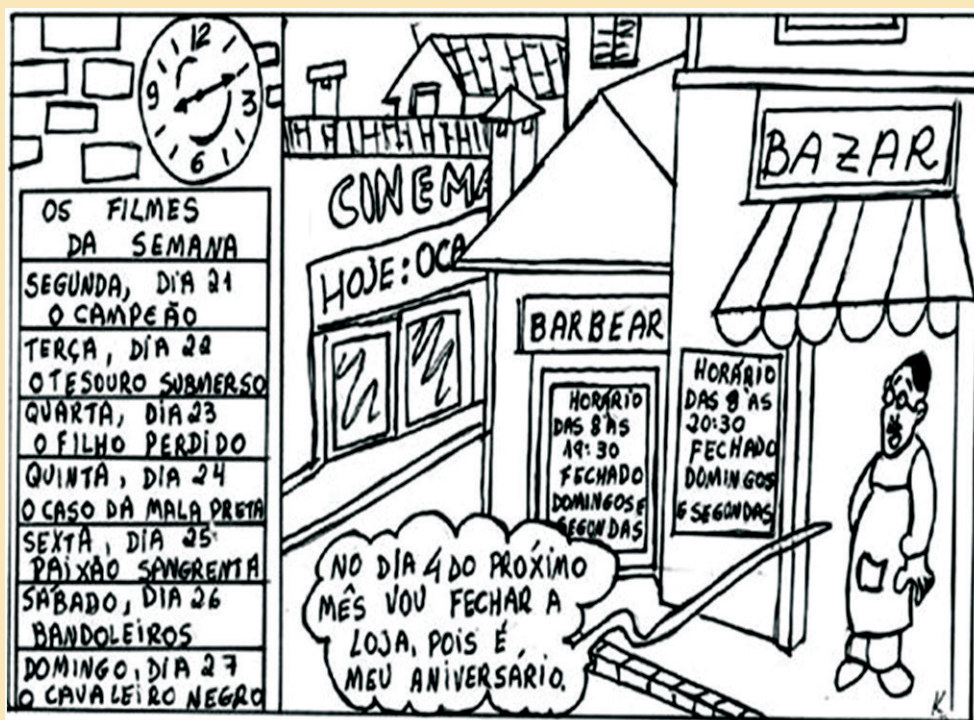 12
9
3
6
OS FILMES
DA SEMANA
SEGUNDA, DIA 21
O CAMPEÃO
TERÇA, DIA 22
O TESOURO SUBMERSO
QUARTA, DIA 23
O FILHO PERDIDO
QUINTA, DIA 24
O CASO DA MALA PRETA
SEXTA, DIA 25
PAIXÃO SANGRENTA
SÁBADO, DIA 26
BANDOLEIROS
DOMINGO, DIA 27
O CAVALEIRO NEGRO
CINEMA
HOJE: OCA
BARBEAR
HORÁRIO
DAS 8 ÀS
19:30
FECHADO
DOMINGOS E
SEGONDAS
BAZAR
HORÁRIO
DAS 8 ÀS
20:30
FECHADO
DOMINGOS
E SEGONDAS
NO DIA 4 DO PRÓXIMO
MÊS VOU FECHAR A
LOJA, POIS É
MEU ANIVERSÁRIO.
K